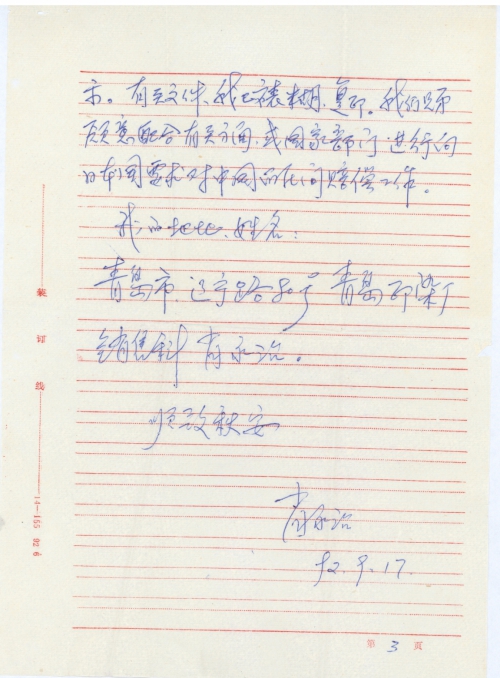 示。有关文件、我已裱糊、复印。我们愿
愿意配合有关方面，或国家部门进行向
日本国要求对中国的民间赔偿工作。
我的地址、姓名：
青岛市辽宁路80号 青岛印染厂
销售科 肖永治。
顺致秋安
肖永治
92.9.17.
装订线
14—155 92 6
第 3 页